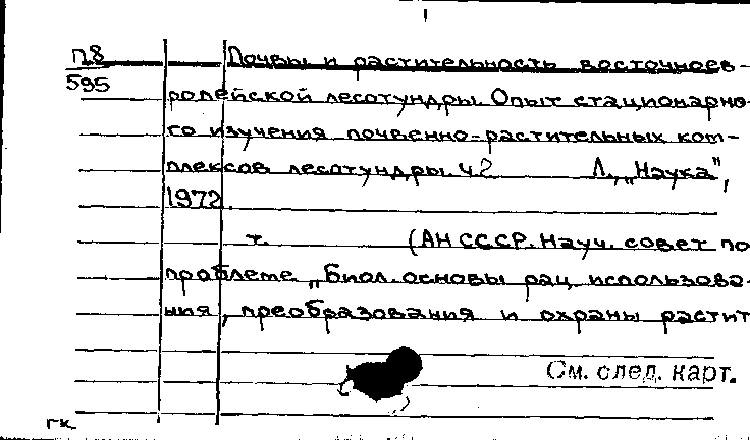 П8
595
Почвы и растительность восточноев-
ропейской лесотундры. Опыт стационарно-
го изучения почвенно-растительных ком-
плексов лесотундры. ч.2 Л., „Наука",
1972.
т. (АН СССР. Науч. совет по
проблеме „Биол. основы рац. использова-
ния, преобразования и охраны растит
См. след. карт.
гк